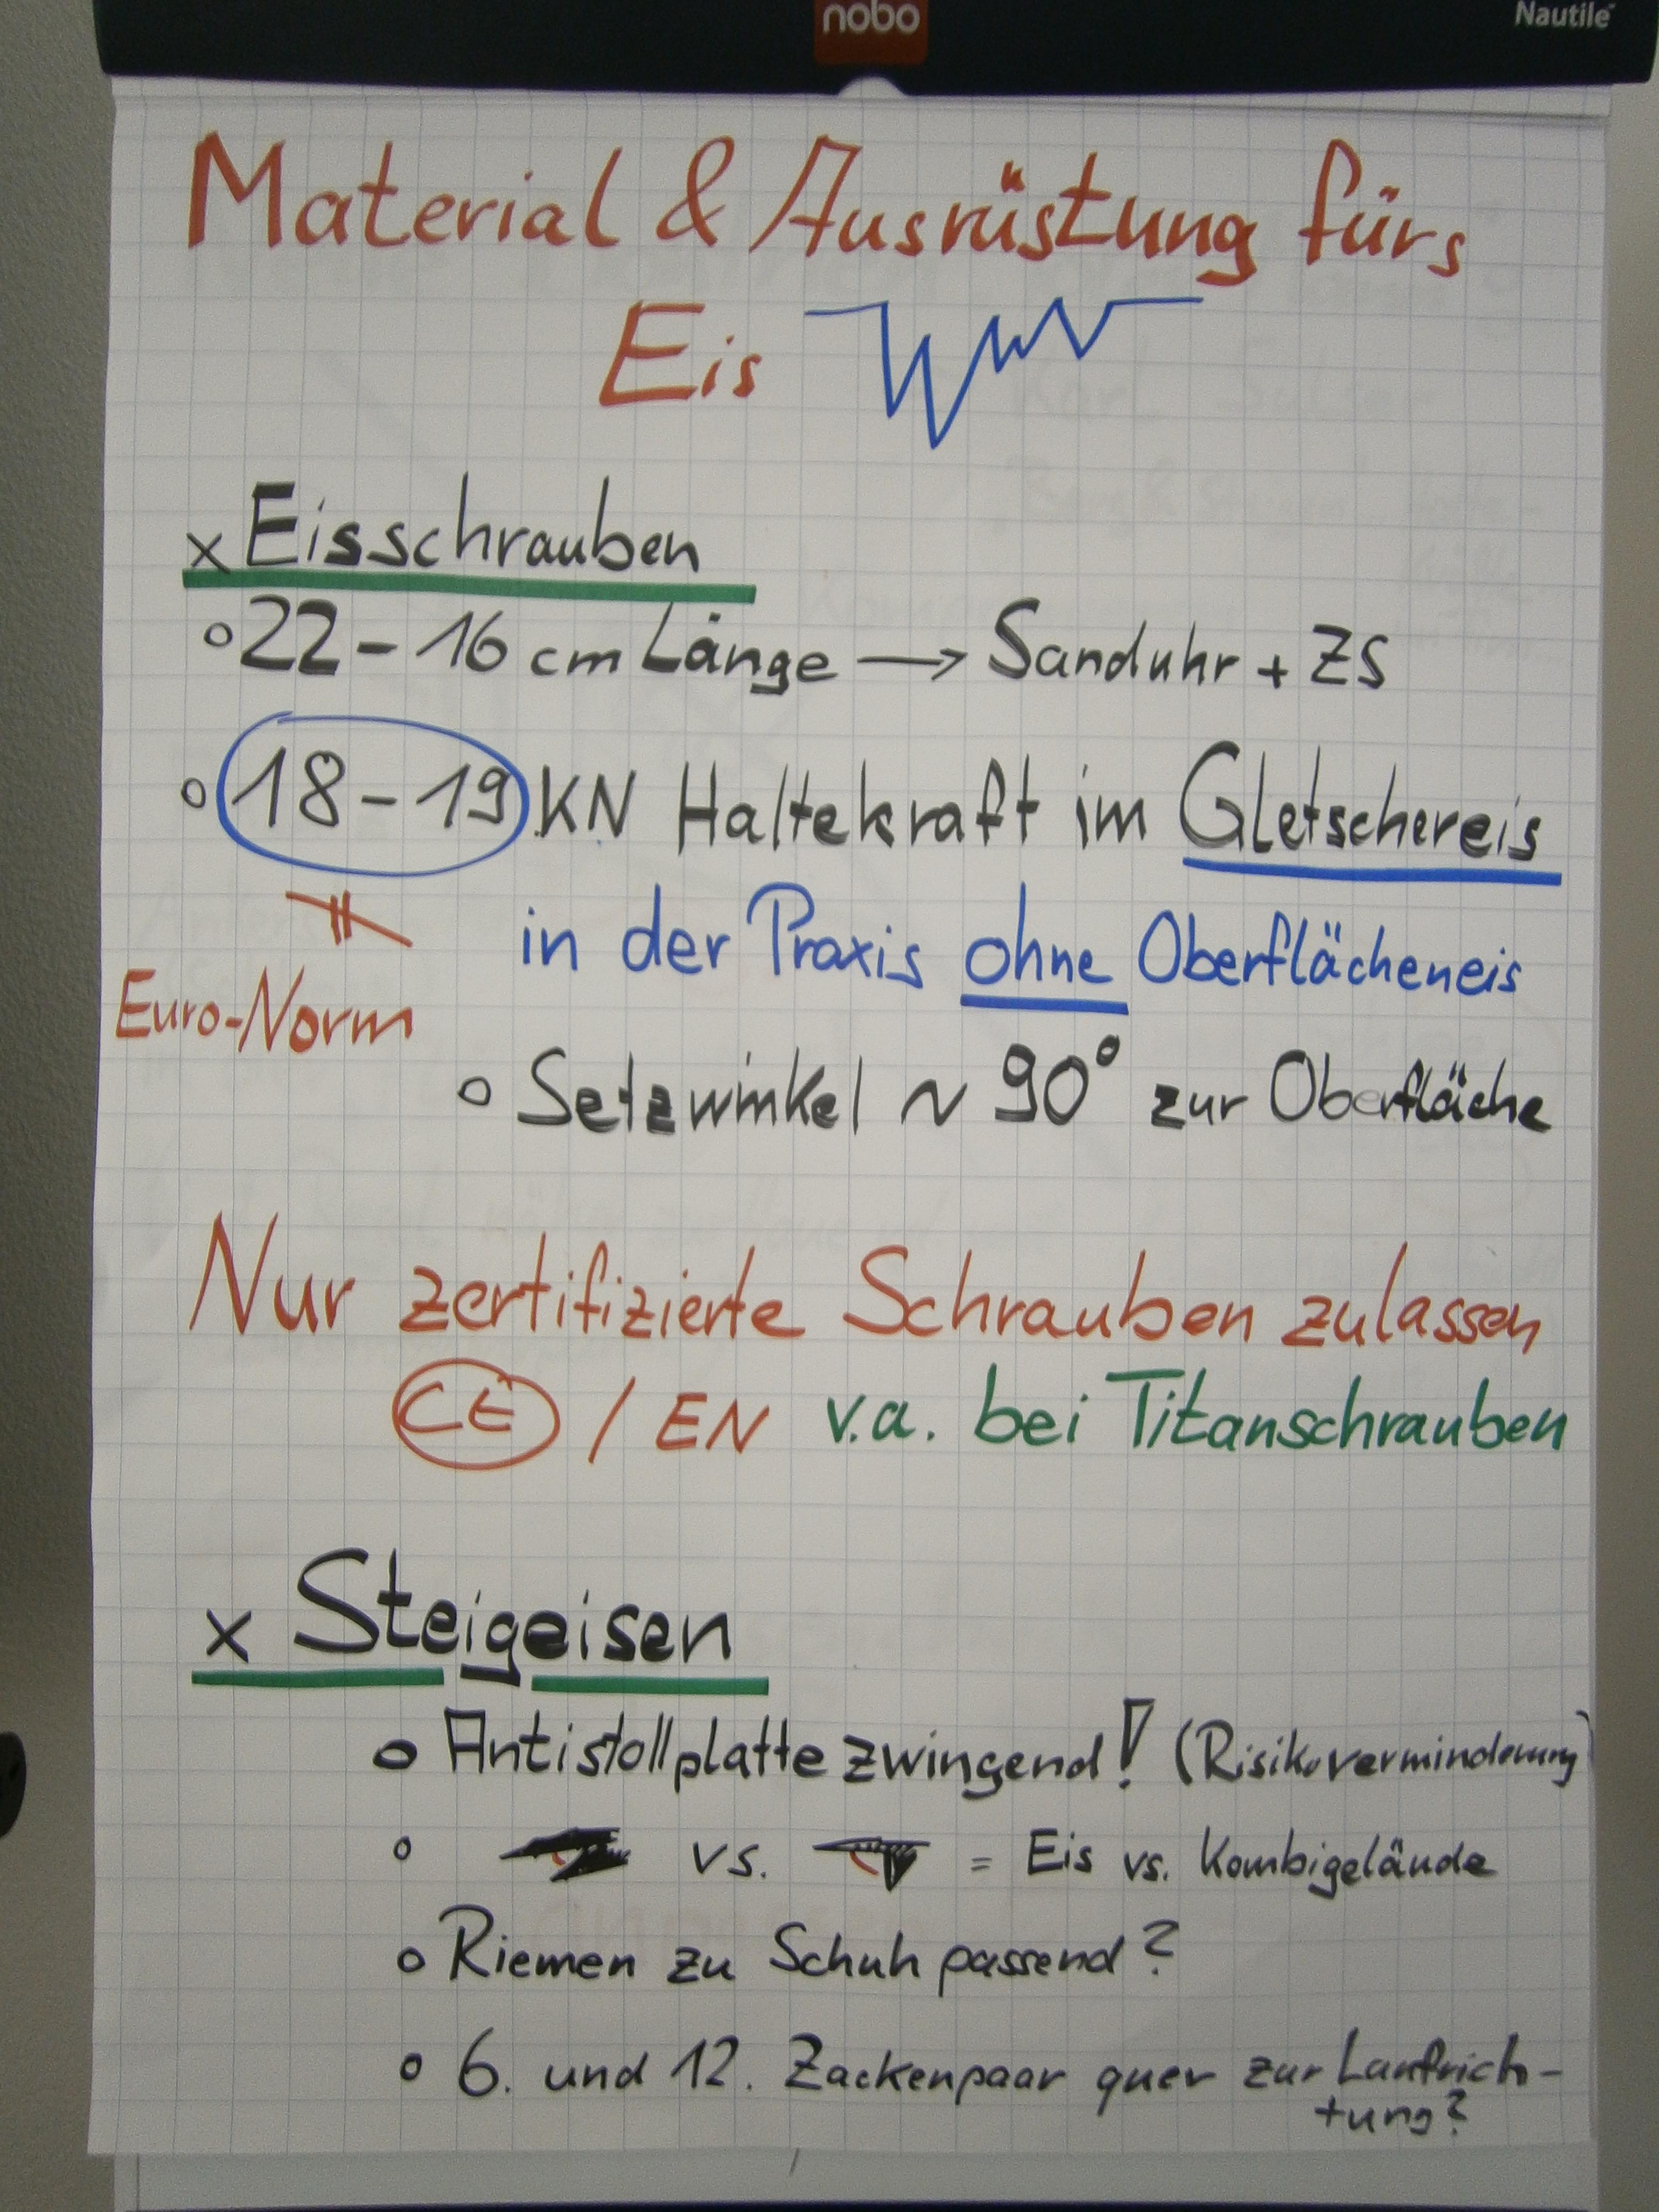 nobo
Nautile
Material & Ausrüstung fürs
Eis
x Eisschrauben
o 22 - 16 cm Länge → Sanduhr + ZS
o 18 - 19 KN Haltekraft im Gletschereis
in der Praxis ohne Oberflächeneis
Euro-Norm
o Setzwinkel ~ 90° zur Oberfläche
Nur zertifizierte Schrauben zulassen
CE / EN v.a. bei Titanschrauben
x Steigeisen
o Antistollplatte zwingend! (Risikoverminderung)
o vs. = Eis vs. Kombigelände
o Riemen zu Schuh passend?
o 6. und 12. Zackenpaar quer zur Laufrich-
tung?